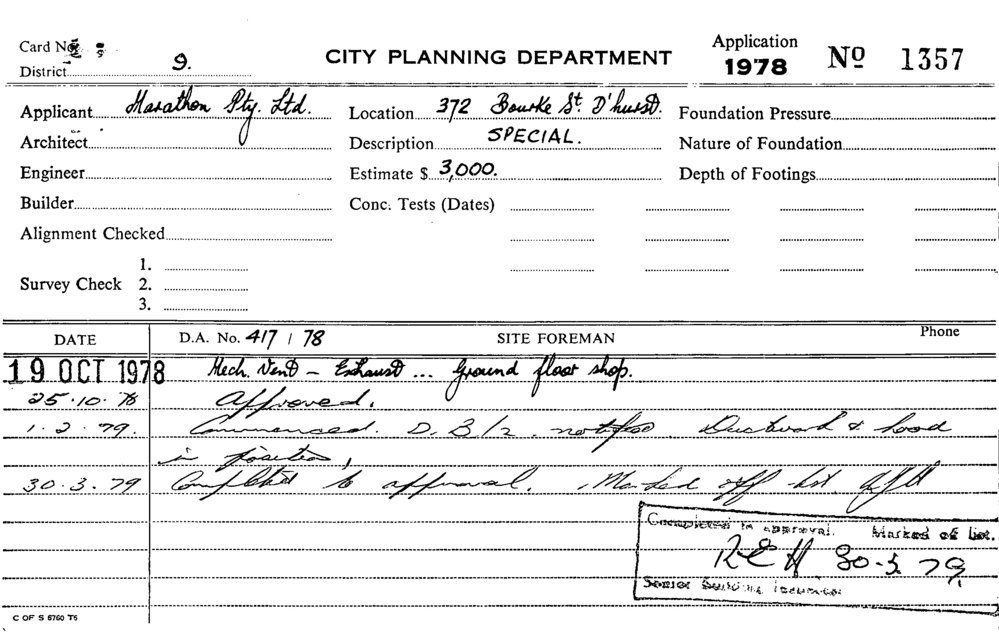 Card No.
District 9.
CITY PLANNING DEPARTMENT
Application
1978
Nº 1357
Applicant Marathon Pty. Ltd.
Location 372 Bourke St. D'hurst.
Foundation Pressure
Architect
Description SPECIAL.
Nature of Foundation
Engineer
Estimate $ 3,000.
Depth of Footings
Builder
Conc. Tests (Dates)
Alignment Checked
Survey Check 1.
2.
3.
DATE
D.A. No. 417 / 78
SITE FOREMAN
Phone
19 OCT 1978 Mech. Vent - Exhaust ... Ground floor shop.
25.10.78 Approved.
1.2.79. Commenced. D.B/2. notified. Ductwork & hood
in position,
30.3.79 Completed to approval. Marked off list.
Completed to approval. Marked of list.
REH 30.3.79
Senior Building Inspector
C OF S 6760 T6